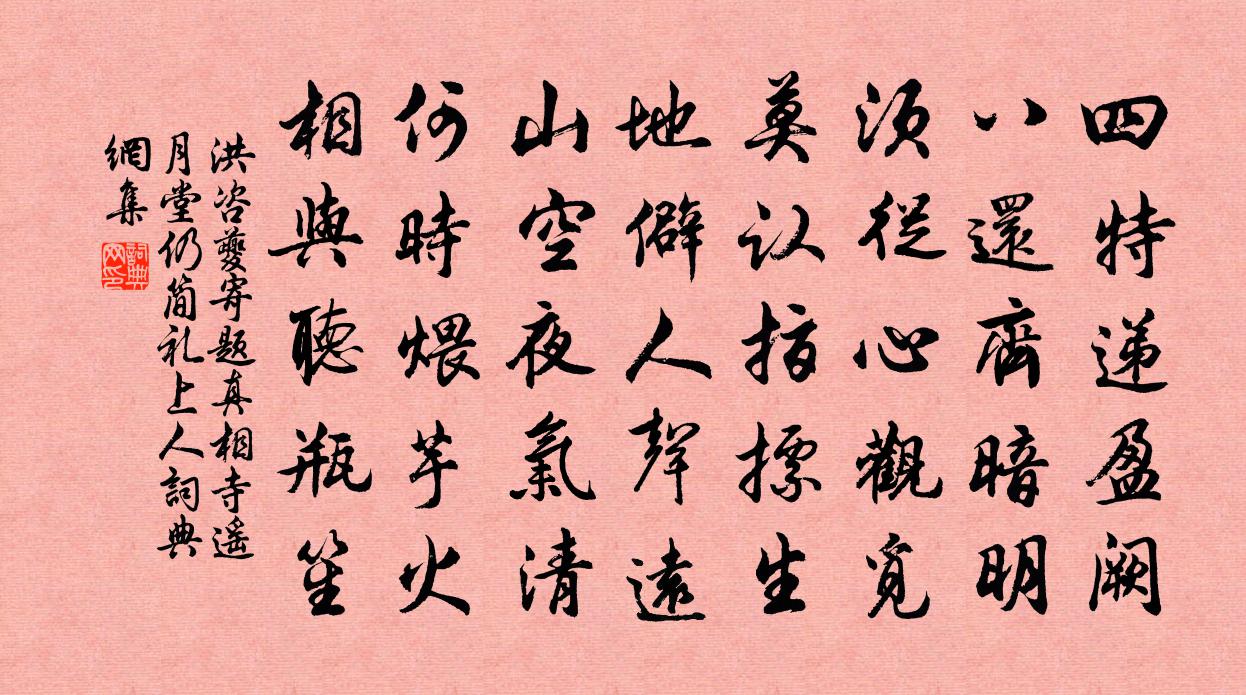 四特递盈阙
八還齊暗明
須從心觀覓
莫认指摽生
地僻人聲遠
山空夜氣清
何時煨芋火
相與聽瓶笙
洪咨夔寄题真相寺遥
月堂仍简礼上人詞典
網集
詞典网印